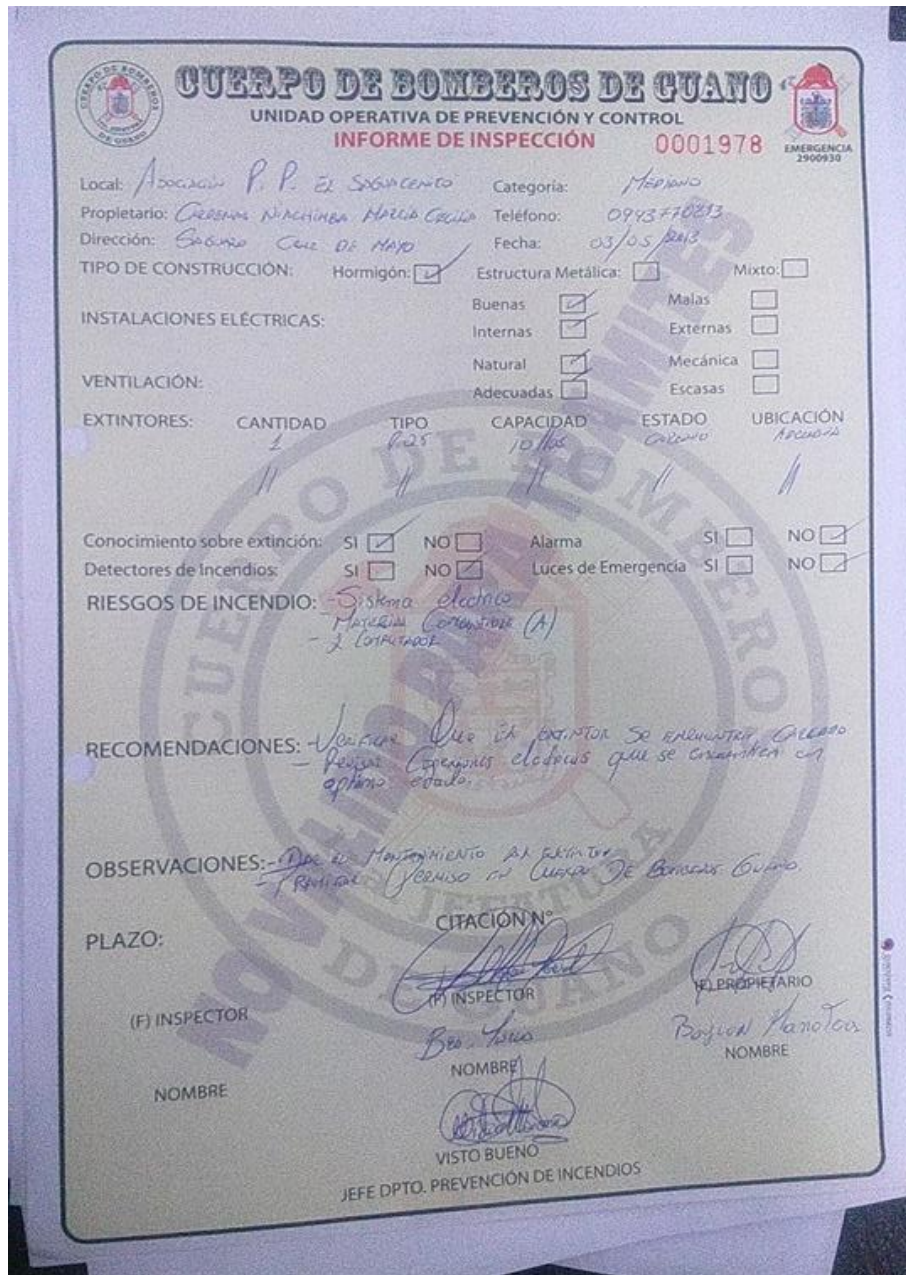 CUERPO DE BOMBEROS DE GUANO
UNIDAD OPERATIVA DE PREVENCIÓN Y CONTROL
INFORME DE INSPECCIÓN 0001978
EMERGENCIA
2900930
Local: Asociación P. P. El Categoría: Mediano
Propietario: Cardenas Marcia Cecilia Teléfono:
Dirección: Cruz De Mayo Fecha: 03/05/2013
TIPO DE CONSTRUCCIÓN: Hormigón: Estructura Metálica: Mixto:
INSTALACIONES ELÉCTRICAS: Buenas Malas
Internas Externas
VENTILACIÓN: Natural Mecánica
Adecuadas Escasas
EXTINTORES: CANTIDAD TIPO CAPACIDAD ESTADO UBICACIÓN
1 10 lbs
Conocimiento sobre extinción: SI NO Alarma SI NO
Detectores de Incendios: SI NO Luces de Emergencia SI NO
RIESGOS DE INCENDIO: - Sistema electrico
- Material Combustible (A)
- 2 Computador
RECOMENDACIONES: - Verificar Que El extintor Se encuentre Cargado
- Revisar Conexiones electricas que se encuentren en
optimo estado.
OBSERVACIONES: - Mantenimiento extintor
- Permiso en Cuerpo De Bomberos Guano.
PLAZO: CITACIÓN N°
(F) INSPECTOR (F) INSPECTOR (F) PROPIETARIO
NOMBRE NOMBRE NOMBRE
VISTO BUENO
JEFE DPTO. PREVENCIÓN DE INCENDIOS
NO VALIDO PARA TRAMITES
CUERPO DE BOMBEROS
JEFATURA
DE GUANO